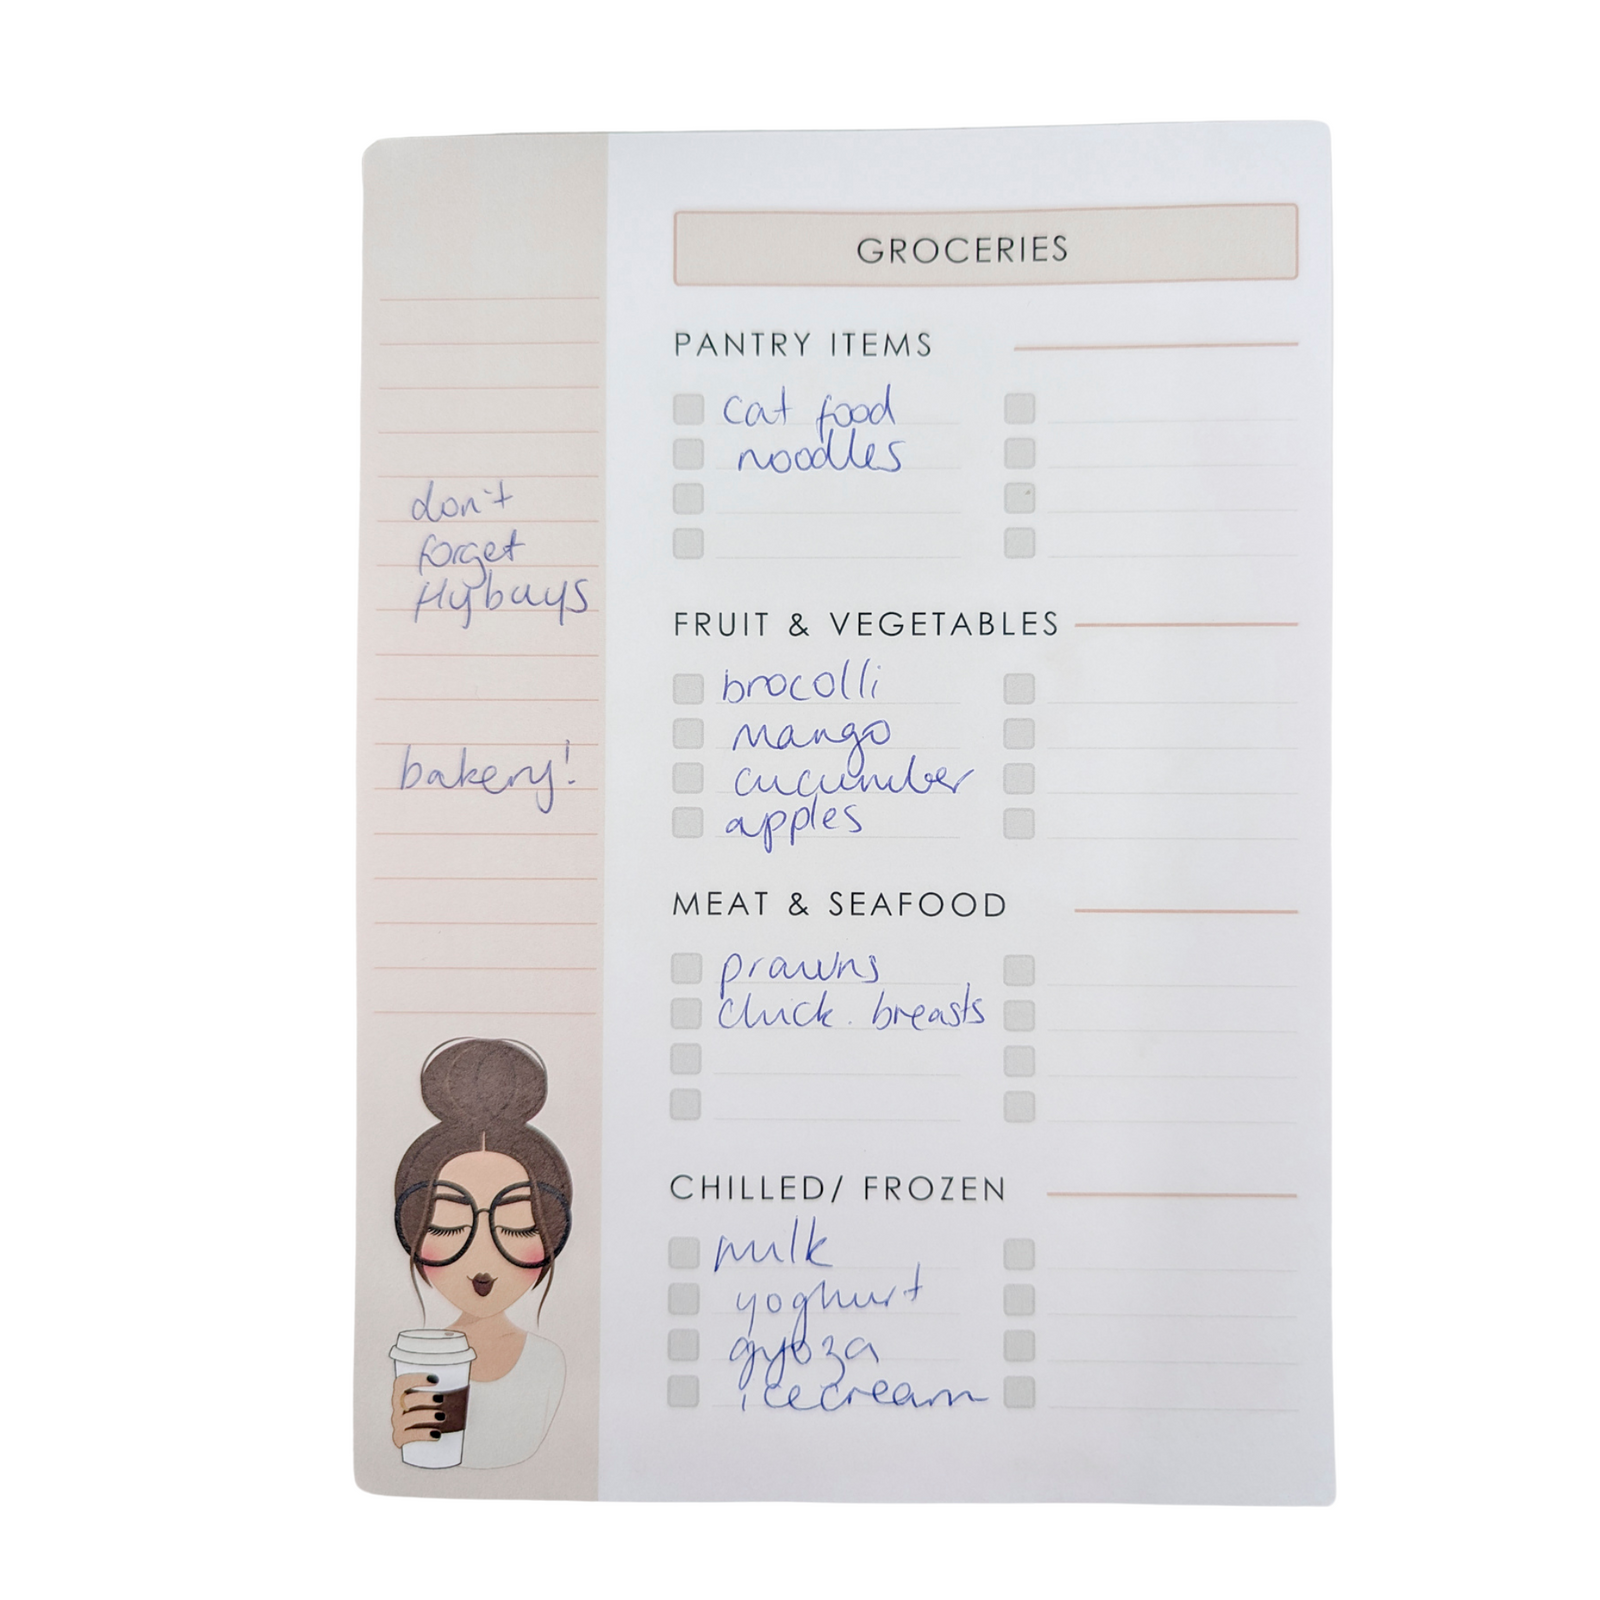 GROCERIES
PANTRY ITEMS
cat food
noodles
FRUIT & VEGETABLES
brocolli
mango
cucumber
apples
MEAT & SEAFOOD
prawns
chick. breasts
CHILLED/ FROZEN
milk
yoghurt
gyoza
icecream
don't
forget
Flybuys
bakery!